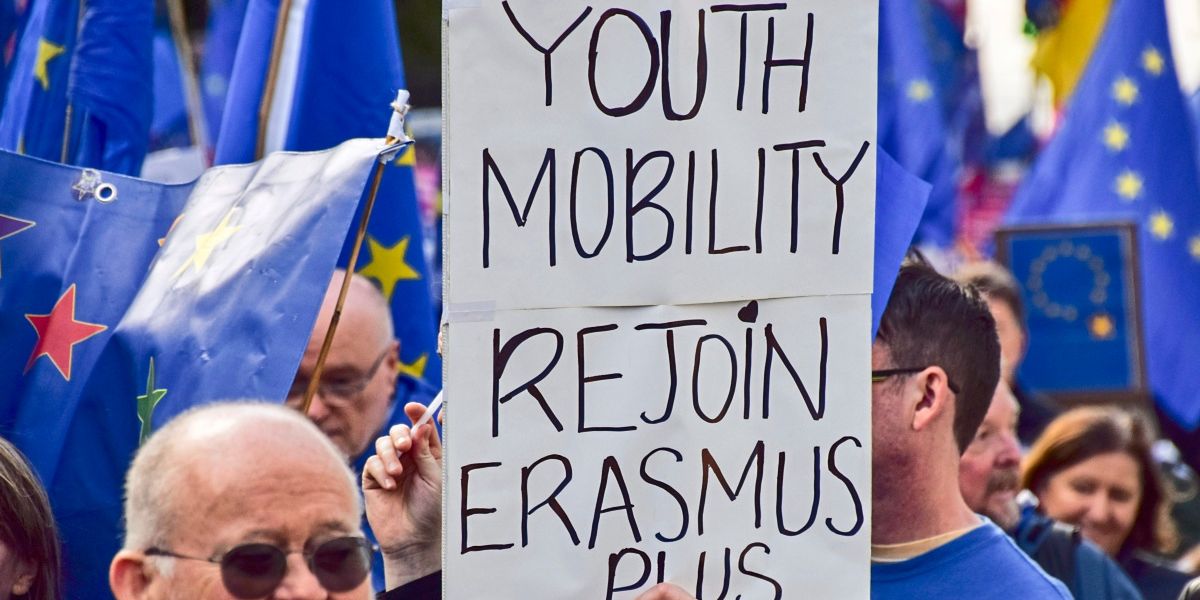 YOUTH
MOBILITY
REJOIN
ERASMUS
PLUS